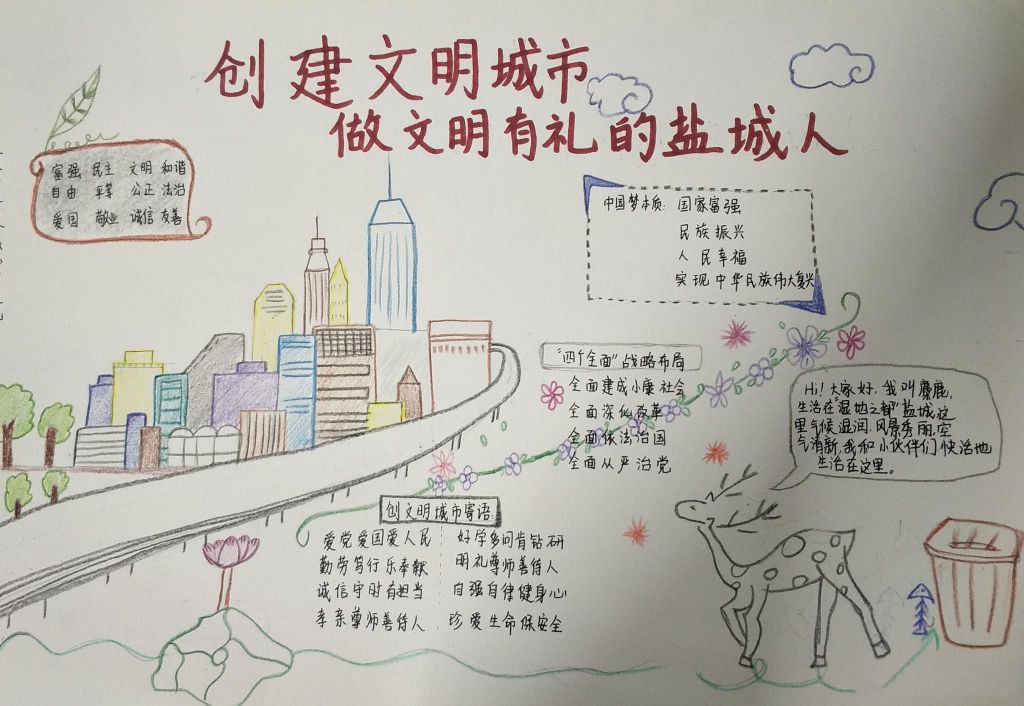 创建文明城市
做文明有礼的盐城人
富强 民主 文明 和谐
自由 平等 公正 法治
爱国 敬业 诚信 友善
中国梦本质: 国家富强
民族振兴
人民幸福
实现中华民族伟大复兴
"四个全面"战略布局
全面建成小康社会
全面深化改革
全面依法治国
全面从严治党
Hi! 大家好, 我叫麋鹿,
生活在"湿地之都"盐城,这
里气候湿润,风景秀丽,空
气清新,我和小伙伴们快活地
生活在这里。
创文明城市寄语:
爱党爱国爱人民
勤劳笃行乐奉献
诚信守时有担当
孝亲尊师善待人
好学多问肯钻研
明礼尊师善待人
自强自律健身心
珍爱生命保安全